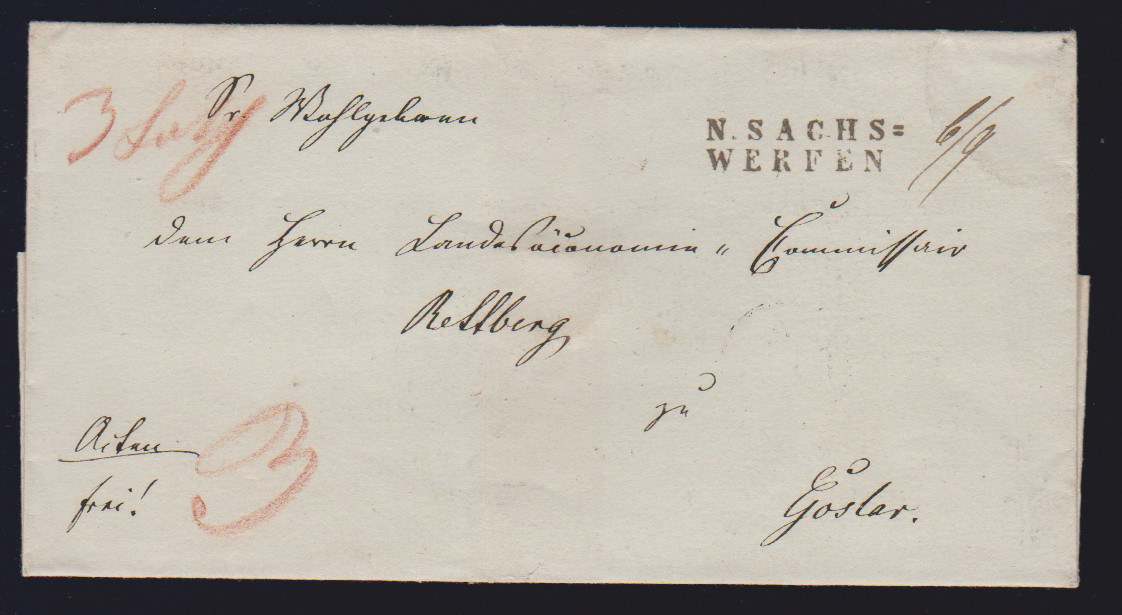 3 Loth
Sr. Wohlgeboren
N. SACHS=
WERFEN
6/9
dem Herrn Landesöconomie " Commissair
Rettberg
zu
Goslar.
Acten
frei!
3